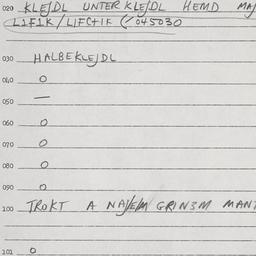 020 KLEJDL UNTER KLEJDL HEMD MA
L1F1K / L1FC+1K (045030
030 HALBEKLEJDL
040 O
050 —
060 O
070 O
080 O
090 O
100 TROKT A NAJEM GRIN3M MANT
101 O